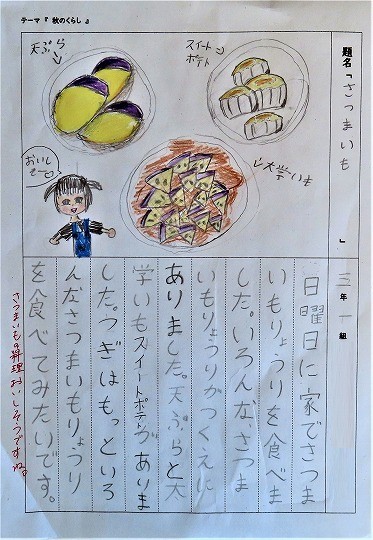 テーマ『 秋のくらし 』
題名「さつまいも」
三年 一組
天ぷら
スイート
ポテト
大学いも
おいし
そー
日曜日に家でさつま
いもりょうりを食べま
した。いろんな、さつま
いもりょうりがつくえに
ありました。天ぷらと大
学いもスイートポテトがありま
した。つぎはもっといろ
んなさつまいもりょうり
を食べてみたいです。
さつまいもの料理おいしそうですね。